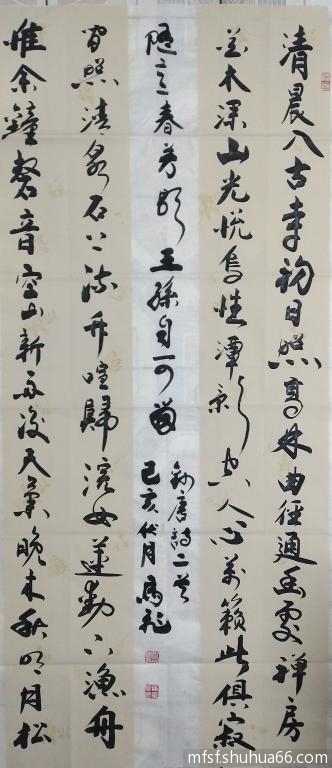 清晨入古寺初日照高林曲徑通幽處禅房
花木深山光悦鸟性潭影空人心萬籟此俱寂
惟余鐘磬音空山新雨後天氣晚来秋明月松
间照清泉石上流竹喧歸浣女蓮動下漁舟
随意春芳歇王孫自可留
錄唐詩二首
己亥伏月馬
mfsf.shuhua66.com